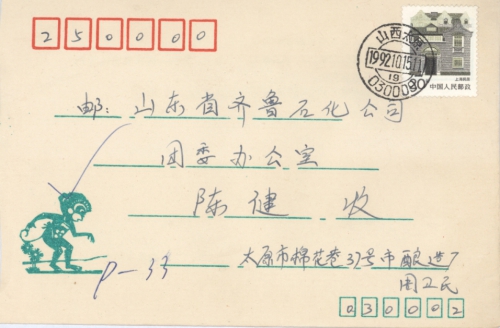 250000
山西太原
1992.10.15.11
19
030009
20
上海民居
中国人民邮政
邮: 山东省齐鲁石化公司
团委办公室
陈健 收
P-33
太原市棉花巷37号市酿造厂
周卫民
030002